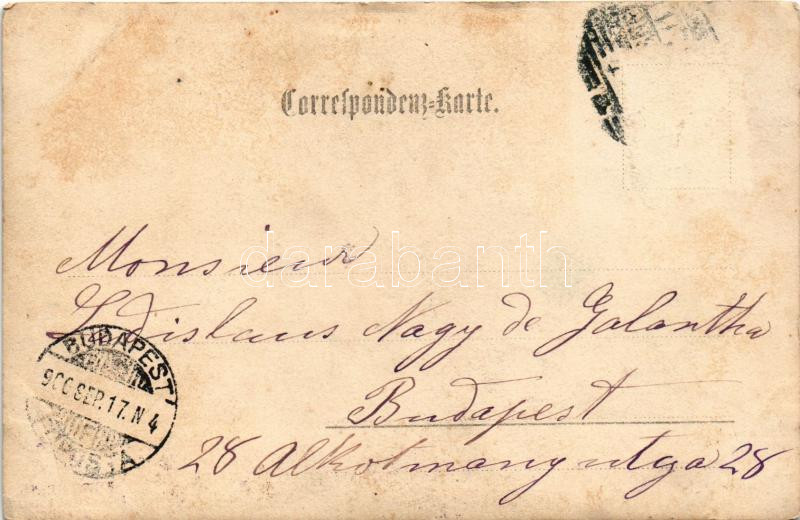 Correspondenz-Karte.
Monsieur
Ladislaus Nagy de Galantha
Budapest
28 Alkotmány utga 28
BUDAPEST
900 SEP. 17. N 4
darabanth